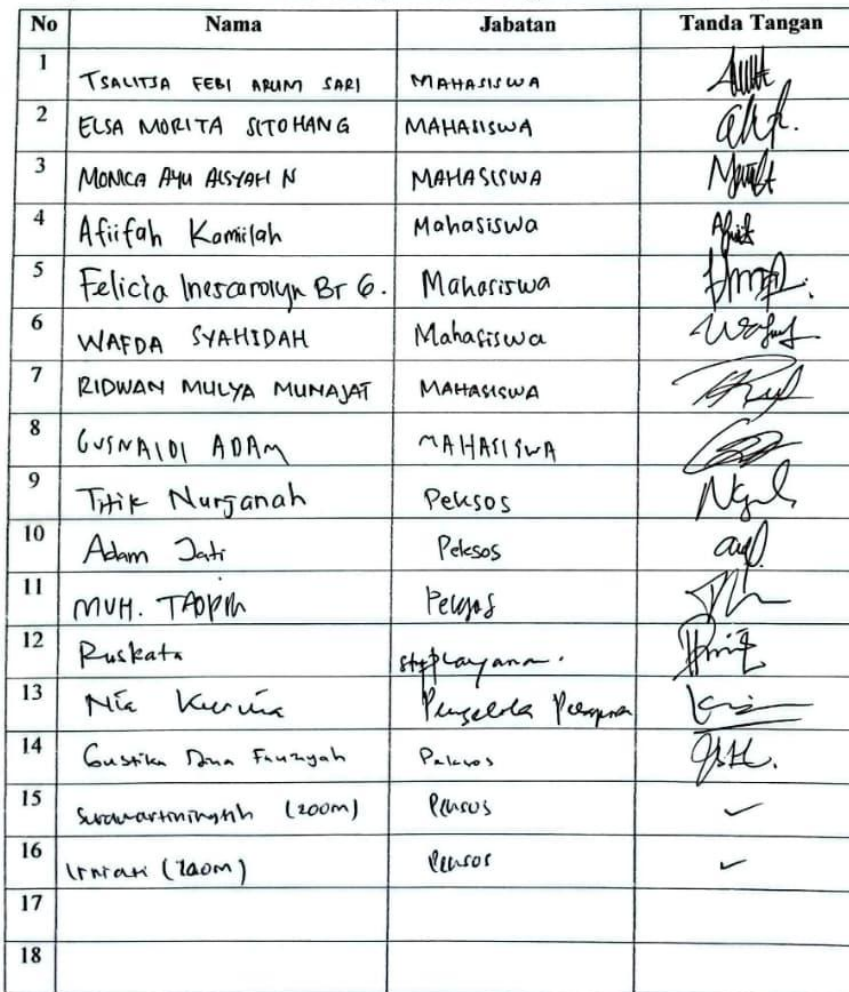 No Nama Jabatan Tanda Tangan
1 TSALITSA FEBI ARUM SARI MAHASISWA
2 ELSA MORITA SITOHANG MAHASISWA
3 MONICA AYU AISYAH N MAHASISWA
4 Afiifah Kamiilah Mahasiswa
5 Felicia Inescarolyn Br G. Mahasiswa
6 WAFDA SYAHIDAH Mahasiswa
7 RIDWAN MULYA MUNAJAT MAHASISWA
8 GUSNAIDI ADAM MAHASISWA
9 Titik Nurjanah Peksos
10 Adam Jati Peksos
11 MUH. Peksos
12 Ruskata
13 Nia Kurnia Pengelola
14 Gustika Dina Fauziyah Peksos
15 (zoom) Peksos
16 (zoom) Peksos
17
18